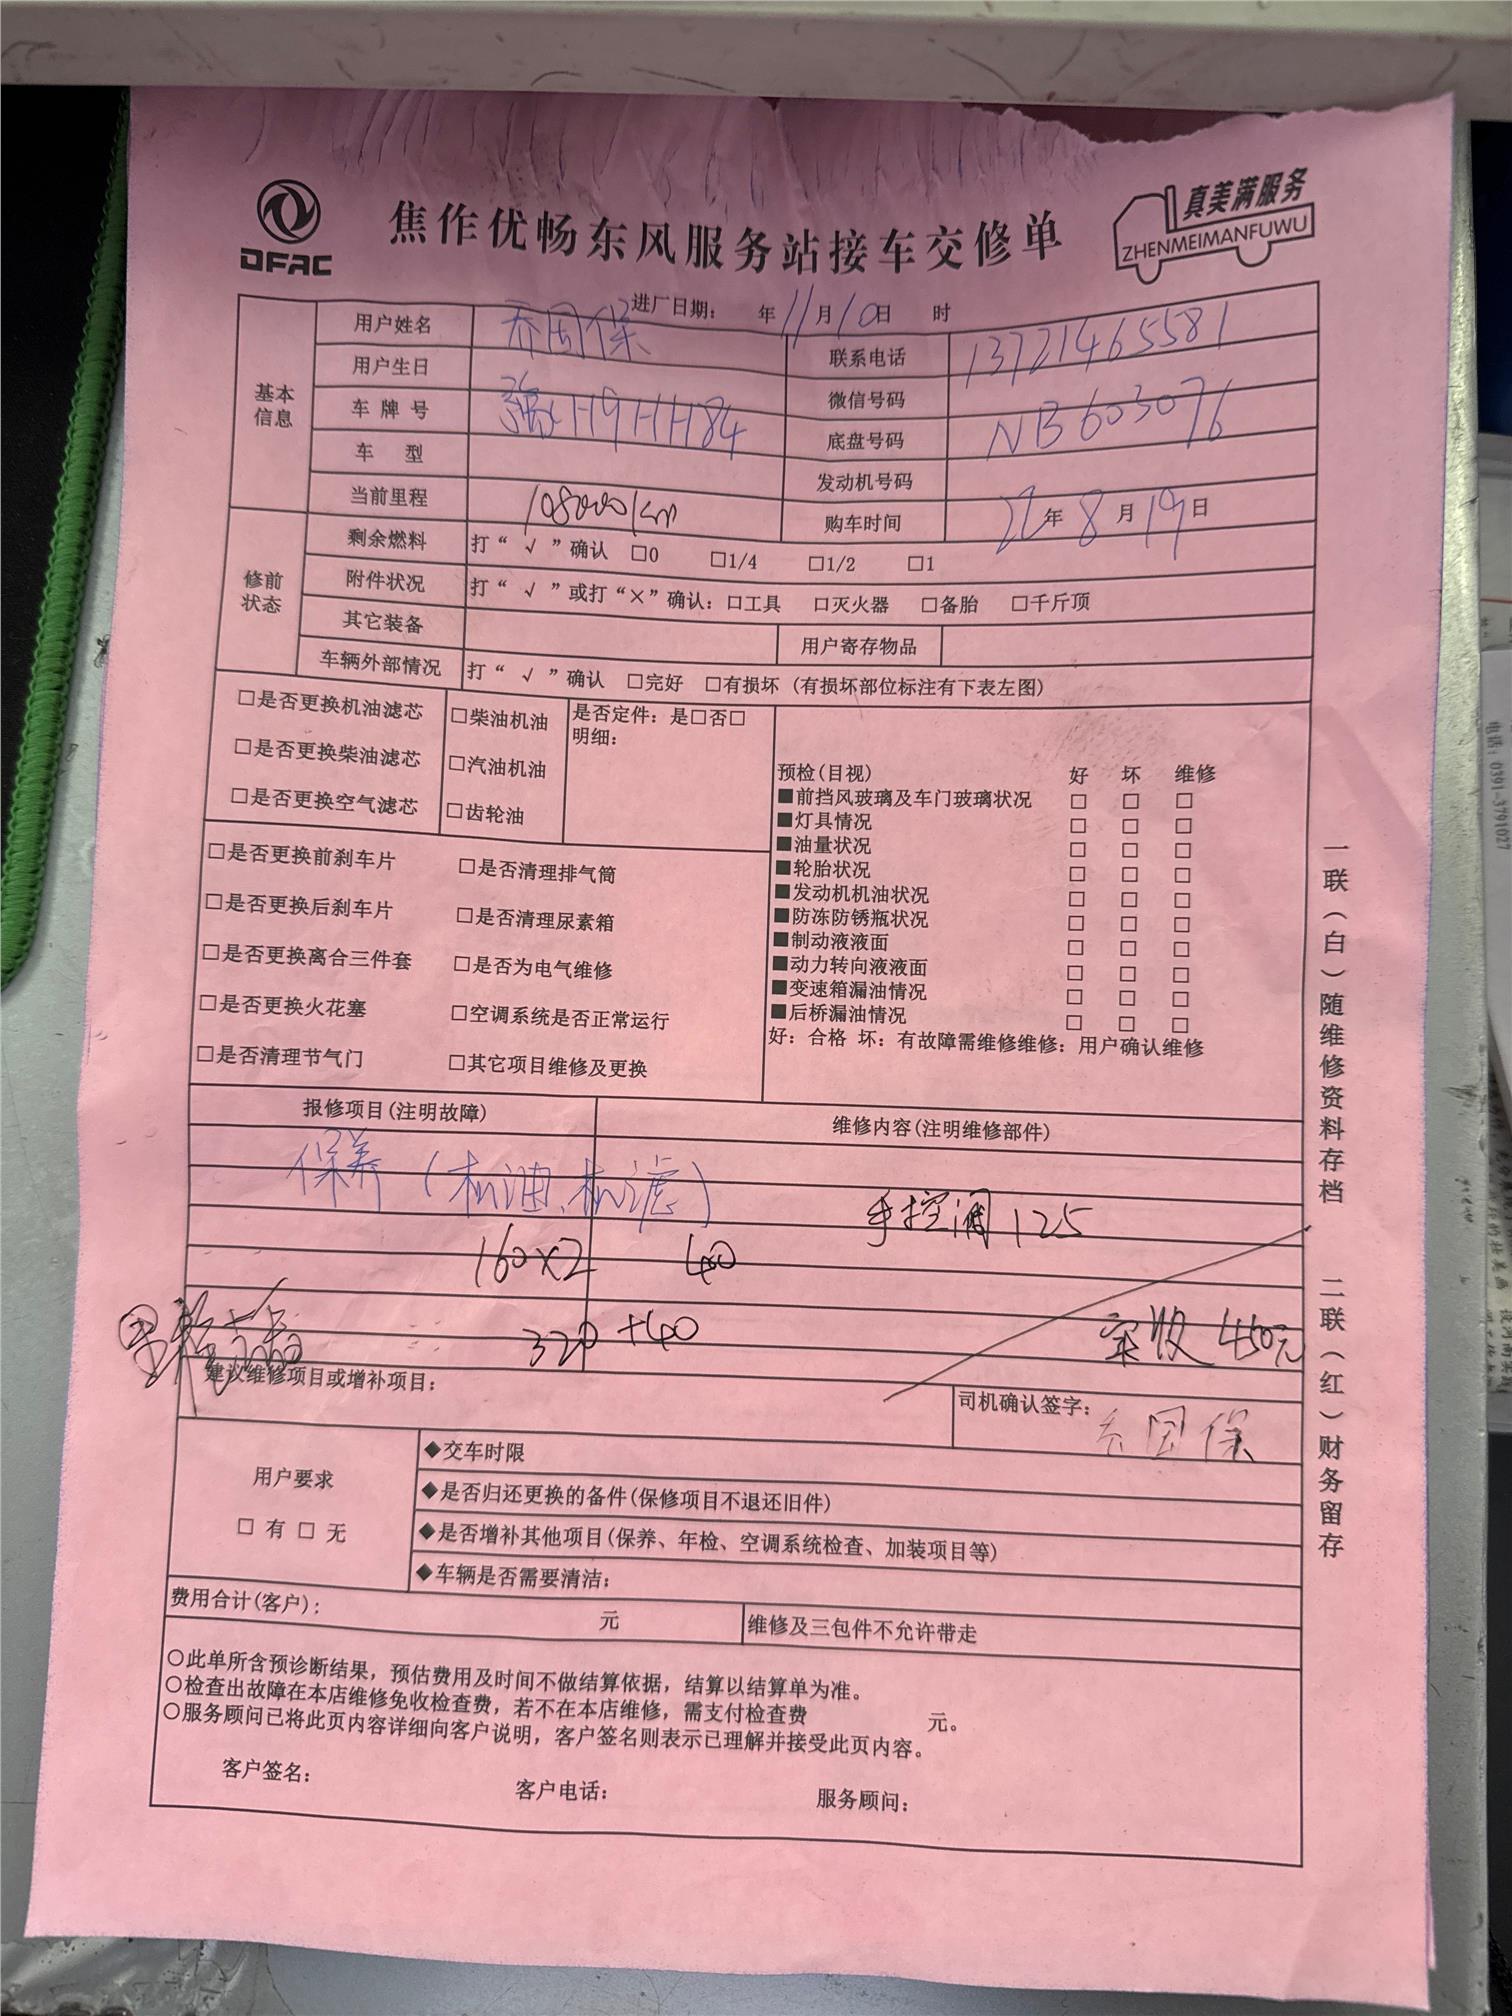 DFAC
焦作优畅东风服务站接车交修单
真美满服务
ZHENMEIMANFUWU
进厂日期： 年11月10日 时
基本信息
用户姓名 乔国保 联系电话 13721465581
用户生日 微信号码
车牌号 豫H9HH84 底盘号码 NB603076
车型 发动机号码
当前里程 108000km 购车时间 22年8月19日
修前状态
剩余燃料 打“√”确认 □0 □1/4 □1/2 □1
附件状况 打“√”或打“×”确认：□工具 □灭火器 □备胎 □千斤顶
其它装备 用户寄存物品
车辆外部情况 打“√”确认 □完好 □有损坏（有损坏部位标注有下表左图）
□是否更换机油滤芯 □柴油机油 是否定件：是□否□
明细：
□是否更换柴油滤芯 □汽油机油
□是否更换空气滤芯 □齿轮油
□是否更换前刹车片 □是否清理排气筒
□是否更换后刹车片 □是否清理尿素箱
□是否更换离合三件套 □是否为电气维修
□是否更换火花塞 □空调系统是否正常运行
□是否清理节气门 □其它项目维修及更换
预检(目视) 好 坏 维修
■前挡风玻璃及车门玻璃状况 □ □ □
■灯具情况 □ □ □
■油量状况 □ □ □
■轮胎状况 □ □ □
■发动机机油状况 □ □ □
■防冻防锈瓶状况 □ □ □
■制动液液面 □ □ □
■动力转向液液面 □ □ □
■变速箱漏油情况 □ □ □
■后桥漏油情况 □ □ □
好：合格 坏：有故障需维修维修：用户确认维修
报修项目(注明故障) 维修内容(注明维修部件)
保养（机油、机滤）
手控阀 125
160×2 40
320+40
实收 450元
建议维修项目或增补项目：
司机确认签字： 乔国保
用户要求
□ 有 □ 无
◆交车时限
◆是否归还更换的备件(保修项目不退还旧件)
◆是否增补其他项目(保养、年检、空调系统检查、加装项目等)
◆车辆是否需要清洁；
费用合计(客户)； 元 维修及三包件不允许带走
○此单所含预诊断结果，预估费用及时间不做结算依据，结算以结算单为准。
○检查出故障在本店维修免收检查费，若不在本店维修，需支付检查费 元。
○服务顾问已将此页内容详细向客户说明，客户签名则表示已理解并接受此页内容。
客户签名： 客户电话： 服务顾问：
一联（白）随维修资料存档
二联（红）财务留存
电话：0391-3791027